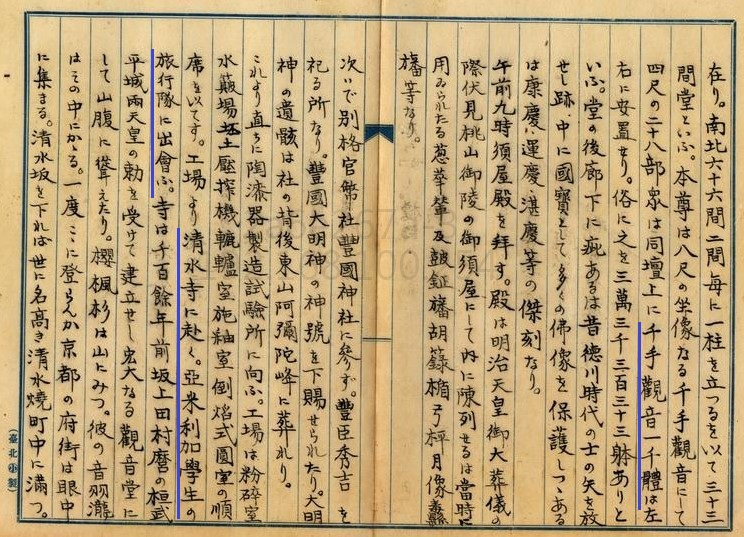 在り。南北六十六間二間每に一柱を立つるを以て三十三
間堂といふ。本尊は八尺の坐像なる千手觀音にして
四尺の二十八部衆は同壇上に千手觀音一千體は左
右に安置せり。俗に之を三萬三千三百三十三躰ありと
いふ。堂の後廊下に疵あるは昔德川時代の士の矢を放
せし跡、中に國寶として多くの佛像を保護しつゝある
は康慶、運慶、湛慶等の傑刻なり。
午前九時須屋殿を拜す。殿は明治天皇御大葬儀の
際伏見桃山御陵の御須屋にして內に陳列せるは當時に
用ゐられたる葱華輦及鼓鉦旛胡籙楯弓桙月像纛
旛等なり。
次いで別格官幣社豐國神社に參ず。豐臣秀吉を
祀る所なり。豐國大明神の神號を下賜せられたり。大明
神の遺骸は社の背後東山阿彌陀峰に葬れり。
これより直ちに陶漆器製造試驗所に向ふ。工場は粉碎室
水簸場坯土壓搾機轆轤室施釉室倒焰式圓室の順
席を以てす。工場より清水寺に赴く。亞米利加學生の
旅行隊に出會ふ。寺は千百餘年前坂上田村麿の桓武
平城兩天皇の勅を受けて建立せし宏大なる觀音堂に
して山腹に聳えたり。櫻楓杉は山にみつ。彼の音羽瀧
はその中にかゝる。一度こゝに登らんか京都の府街は眼中
に集まる。清水坂を下れば世に名高き清水燒町中に滿つ。
(臺北小製)